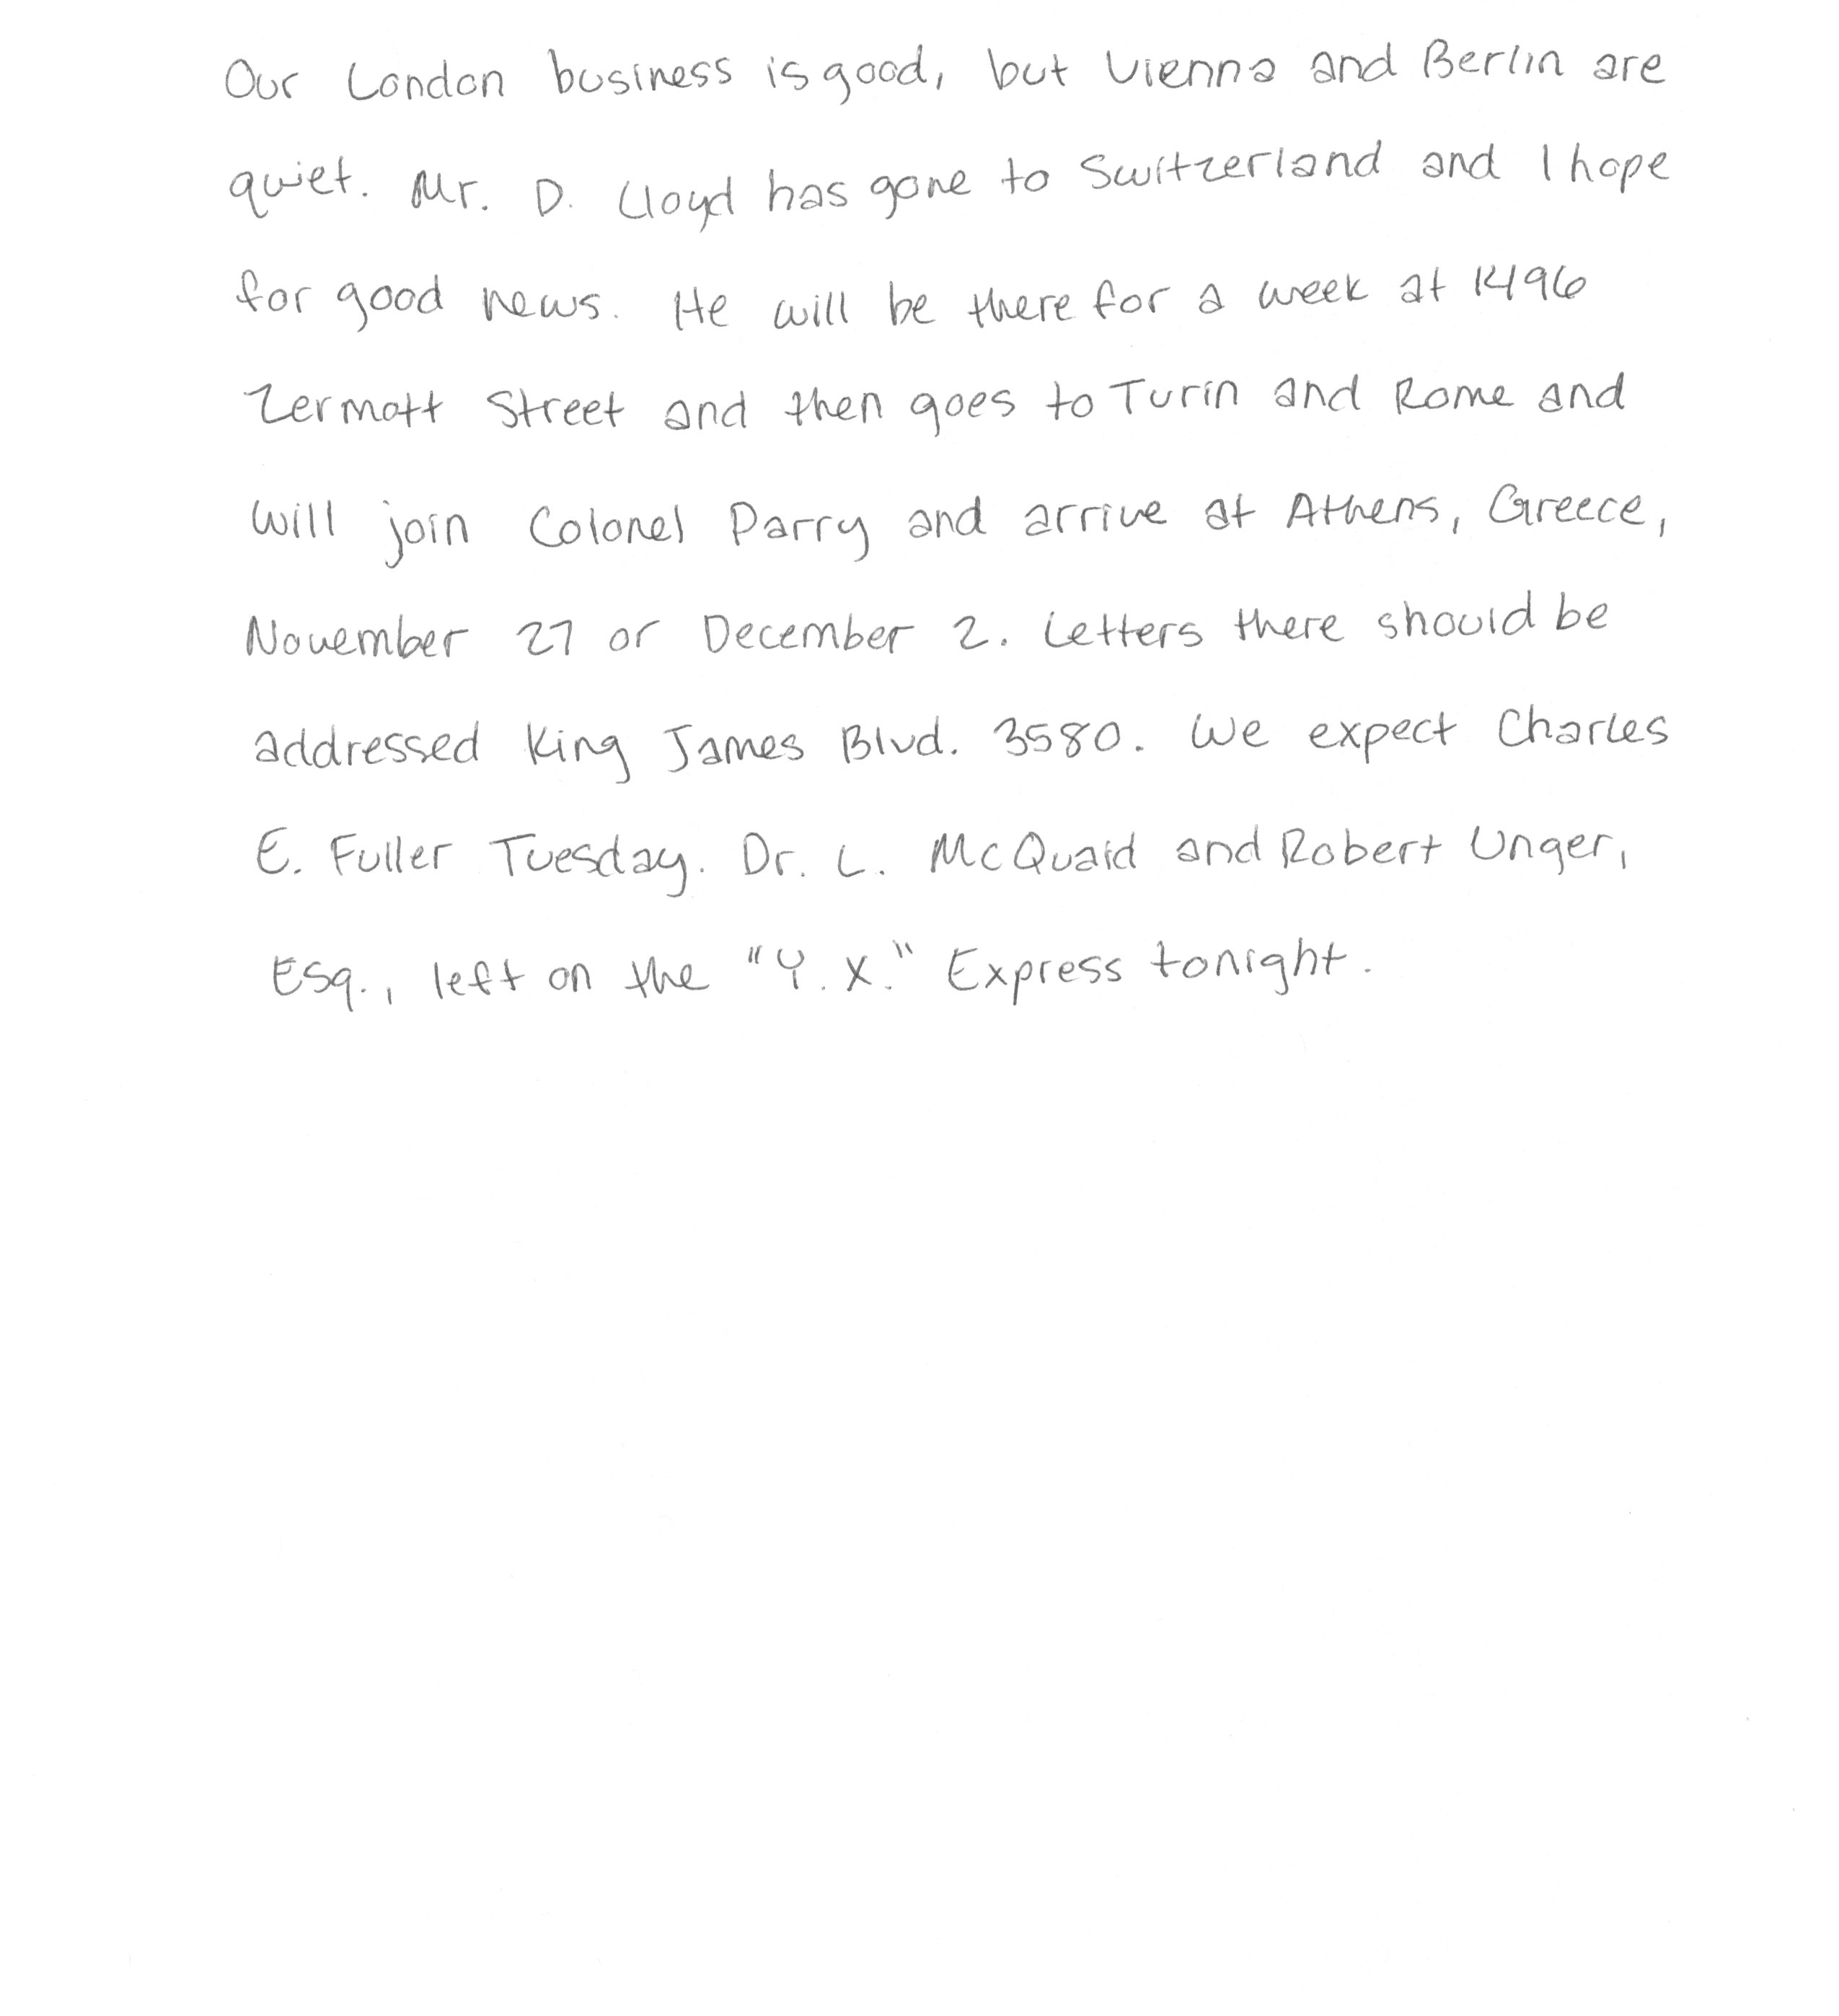 Our London business is good, but Vienna and Berlin are
quiet. Mr. D. Lloyd has gone to Switzerland and I hope
for good news. He will be there for a week at 1496
Zermott Street and then goes to Turin and Rome and
will join Colonel Parry and arrive at Athens, Greece,
November 27 or December 2. Letters there should be
addressed King James Blvd. 3580. We expect Charles
E. Fuller Tuesday. Dr. L. McQuaid and Robert Unger,
Esq., left on the "Y. X." Express tonight.